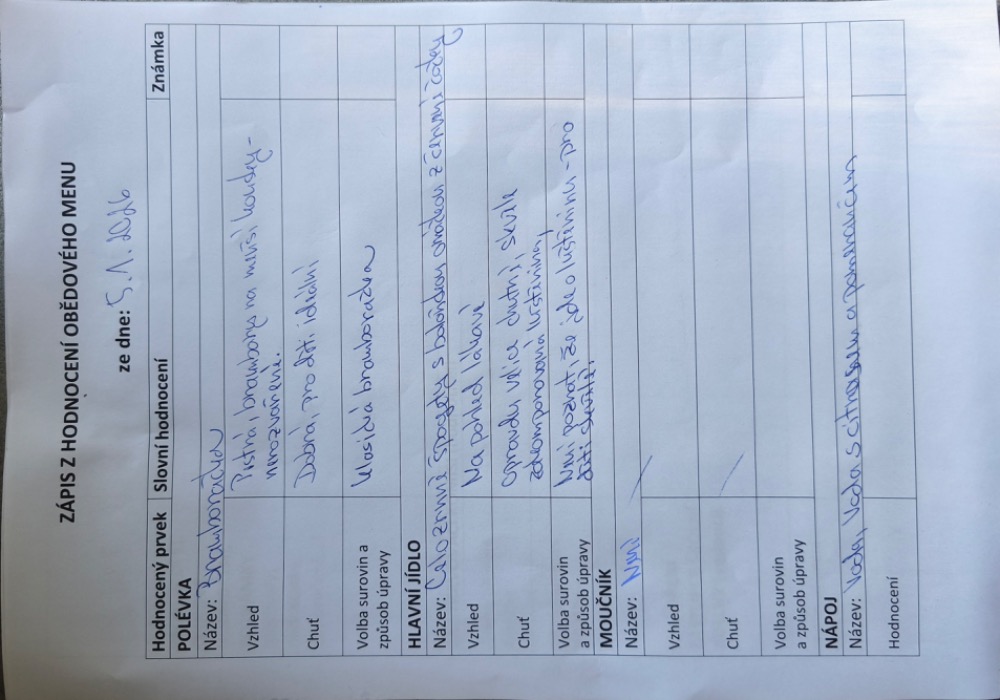 ZÁPIS Z HODNOCENÍ OBĚDOVÉHO MENU
ze dne: 5.1.2026
Hodnocený prvek Slovní hodnocení Známka
POLÉVKA
Název: Bramboračka
Vzhled Pestrá, brambory na menší kousky -
nerozvářené.
Chuť Dobrá, pro děti ideální
Volba surovin a
způsob úpravy Klasická bramboračka
HLAVNÍ JÍDLO
Název: Celozrnné špagety s boloňskou omáčkou z červené čočky
Vzhled Na pohled lákavé
Chuť Opravdu velice chutné, skvěle
zakomponovaná luštěnina,
Volba surovin Není poznat, že jde o luštěninu - pro
a způsob úpravy děti skvělé.
MOUČNÍK
Název: Není
Vzhled
Chuť
Volba surovin
a způsob úpravy
NÁPOJ
Název: Voda, Voda s citronem a pomerančem
Hodnocení